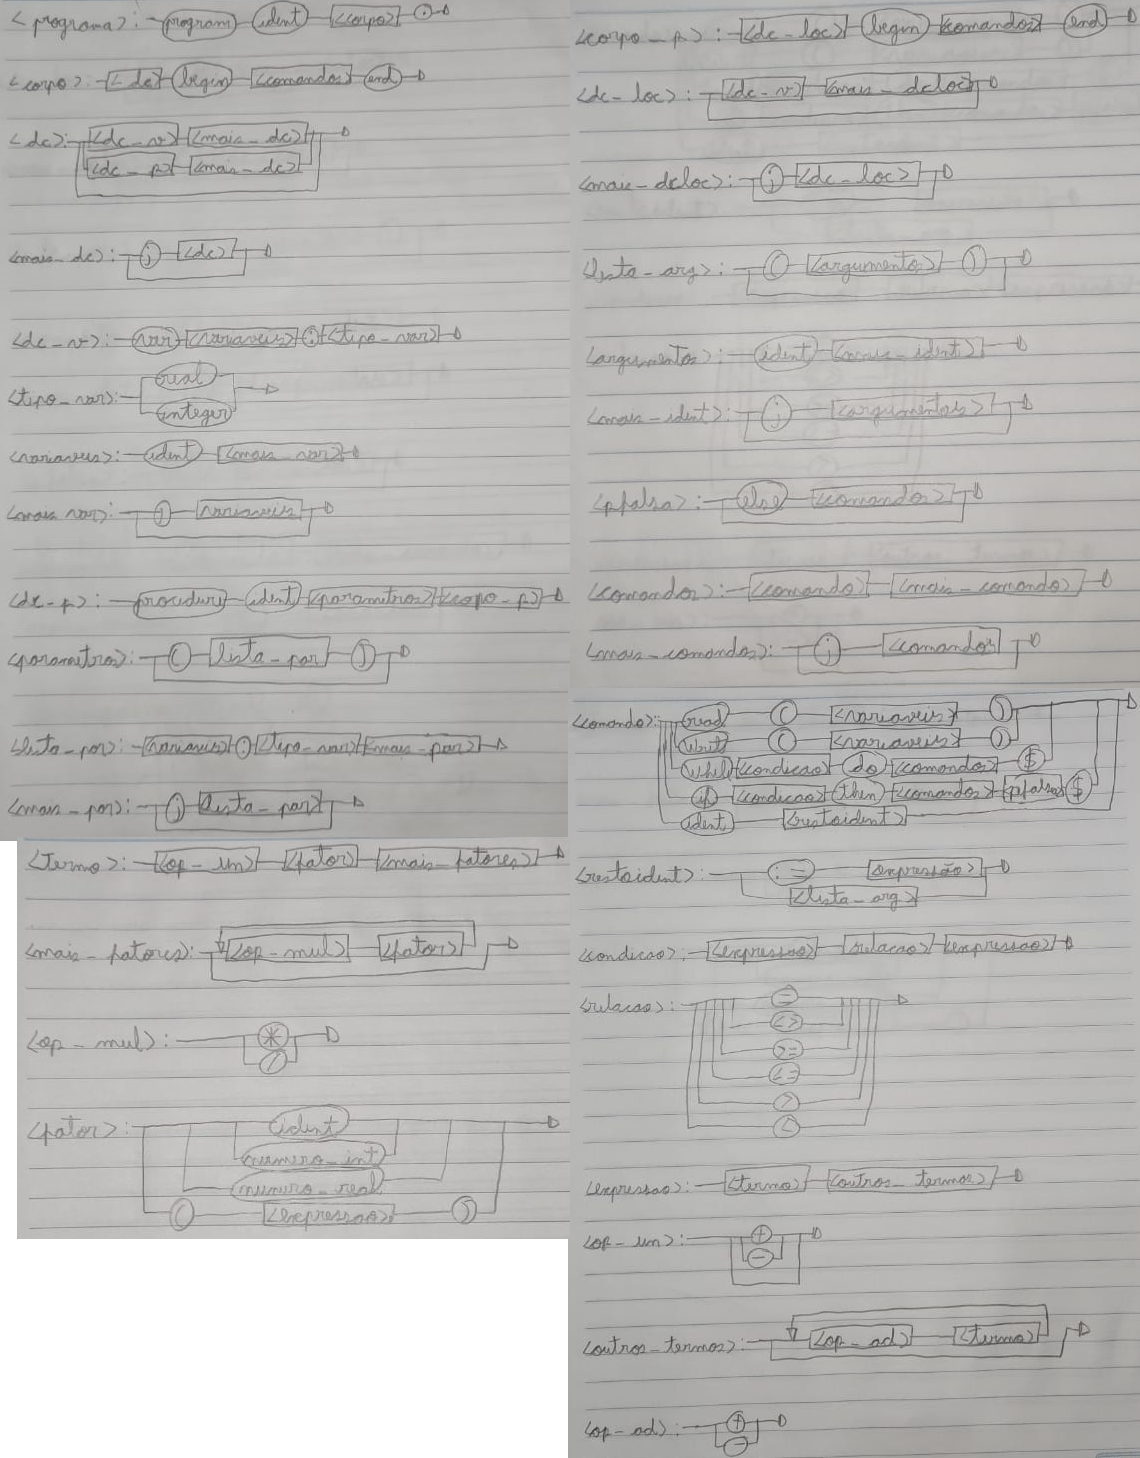 <programa>: program ident <corpo> .
<corpo>: <dc> begin <comandos> end
<dc>: <dc_v> <mais_dc>
<dc_p> <mais_dc>
<mais_dc>: ; <dc>
<dc_v>: var <variaveis> : <tipo_var>
<tipo_var>: real
integer
<variaveis>: ident <mais_var>
<mais_var>: , <variaveis>
<dc_p>: procedure ident <parametros> <corpo_p>
<parametros>: ( lista_par )
<lista_par>: <variaveis> : <tipo_var> <mais_par>
<mais_par>: ; <lista_par>
<termo>: <op_un> <fator> <mais_fatores>
<mais_fatores>: <op_mul> <fator>
<op_mul>: *
/
<fator>: ident
numero_int
numero_real
( <expressao> )
<corpo_p>: <dc_loc> begin <comandos> end
<dc_loc>: <dc_v> <mais_dcloc>
<mais_dcloc>: ; <dc_loc>
<lista_arg>: ( <argumentos> )
<argumentos>: ident <mais_ident>
<mais_ident>: ; <argumentos>
<pfalsa>: else <comandos>
<comandos>: <comando> <mais_comando>
<mais_comandos>: ; <comandos>
<comando>: read ( <variaveis> )
write ( <variaveis> )
while <condicao> do <comandos> $
if <condicao> then <comandos> <pfalsa> $
ident <restoident>
<restoident>: := <expressão>
<lista_arg>
<condicao>: <expressao> <relacao> <expressao>
<relacao>: =
<>
>=
<=
>
<
<expressao>: <termo> <outros_termos>
<op_un>: +
-
<outros_termos>: <op_ad> <termo>
<op_ad>: +
-